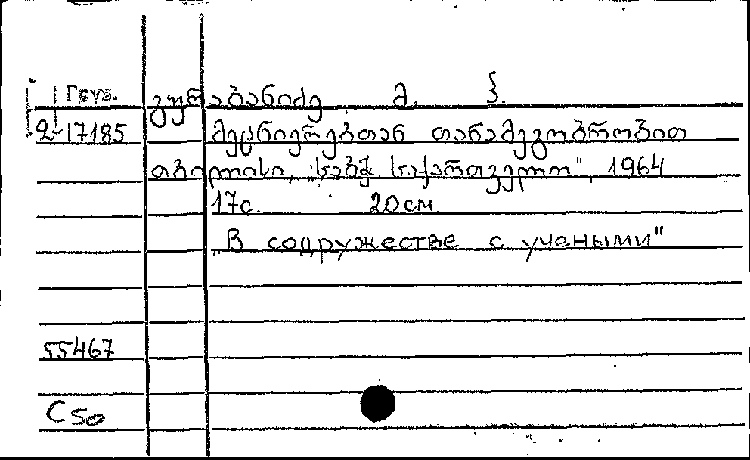 Груз. გურაბანიძე მ. ზ.
2-17185 მეცნიერებთან თანამეგობრობით
თბილისი, "საბჭ. საქართველო", 1964
17с. 20см
"В содружестве с учеными"
55467
C50